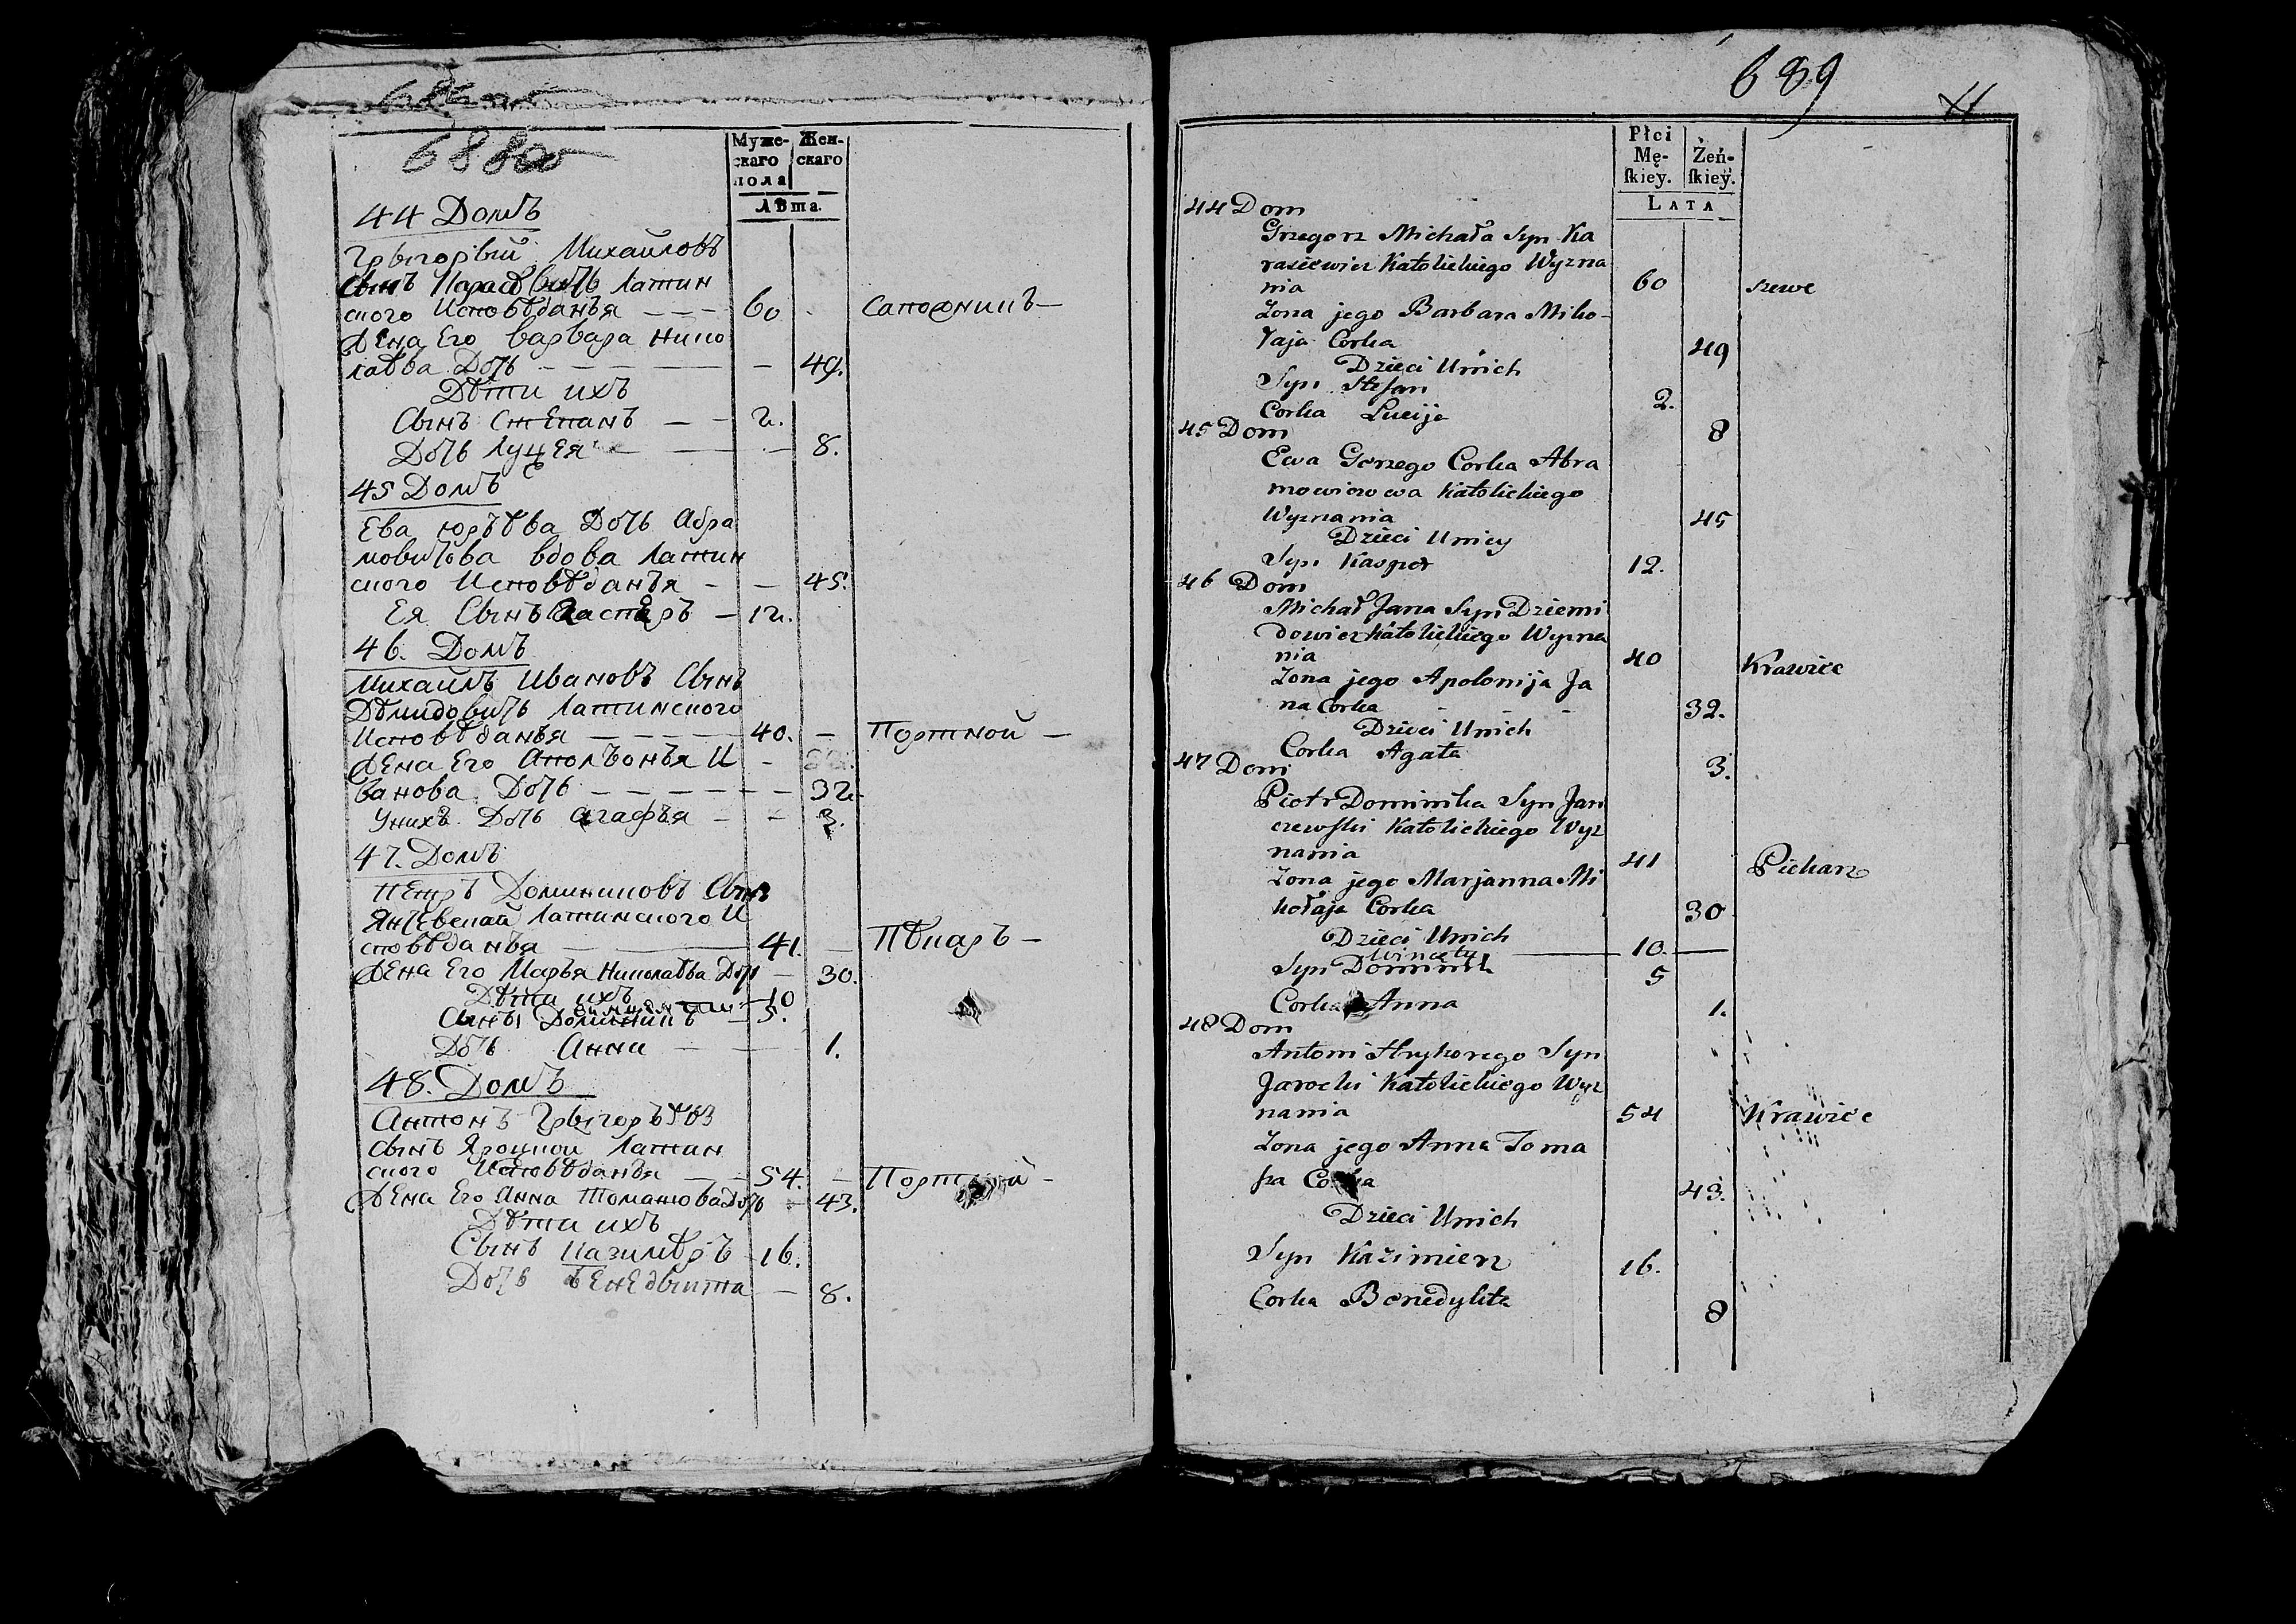 688об
Муже-
скаго
пола
Жен-
скаго
Лѣта.
44 Домъ
Грыгорый Михайловъ
Сынъ Карасѣвичь Латин
ского Исповѣданъя — — — 60 Сапожникъ —
Жена Его Варвара Нико
лаѣва Дочь — — — — — — 49.
Дѣти ихъ
Сынъ Степанъ — — 2.
Дочь Луцея — — — 8.
45 Домъ
Ева Юръѣва Дочь Абра
мовичова вдова Латин
ского Исповѣданъя — — 45.
Ея Сынъ Каспѣръ — 12.
46. Домъ
Михайлъ Ивановъ Сынъ
Дѣмидовичь Латинского
Исповѣданъя — — — — 40. — Портной —
Жена Его Аполъонъя И —
ванова Дочь — — — — — — 32.
Унихъ Дочь Агафъя — — 3.
47. Домъ
Петръ Доминиковъ Сынъ
Янчевскай Латинского И
сповѣданъя — — 41. — Пѣкаръ —
Жена Его Маръя Николаѣва Дочь — 30.
Дѣти ихъ 10
Сыны Доминикъ — 5.
Дочь Анна — — 1.
48. Домъ
Антонъ Грыгоръѣвъ
Сынъ Яроцкой Латин
ского Исповѣданъя — — 54. — Портной —
Жена Его Анна Томашова Дочь — 43.
Дѣти ихъ
Сынъ Казимѣръ — 16.
Дочь Бенедыкта — 8.
689
Płci
Mę-
ſkiey.
Żeń-
ſkiey.
LATA
44 Dom
Grzegorz Michała Syn Ka
rasiewicz Katolickiego Wyzna
nia 60 szewc
Zona jego Barbara Miko-
łaja Corka 49
Dzieci Unich
Syn Stefan 2.
Corka Lucija 8
45 Dom
Ewa Grzego Corka Abra
mowiczowa Katolickiego
Wyznania 45
Dzieci Unicy
Syn Kasper 12.
46 Dom
Michał Jana Syn Dziemi
dowicz Katolickiego Wyzna
nia 40 Krawiec
Zona jego Apolonija Ja
na Corka - - - 32.
Dzieci Unich
Corka Agata 3.
47 Dom
Piotr Dominika Syn Jan
czewſki Katolickiego Wyz
nania 41 Piekarz
Zona jego Marjanna Mi
kołaja Corka 30
Dzieci Unich
Wincęty — 10. —
Syn Dominik 5
Corka Anna 1.
48 Dom
Antoni Hryhorego Syn
Jarocki Katolickiego Wyz
nania 54 Krawiec
Zona jego Anna Toma
ſza Corka 43.
Dzieci Unich
Syn Kazimierz 16.
Corka Benedykta 8